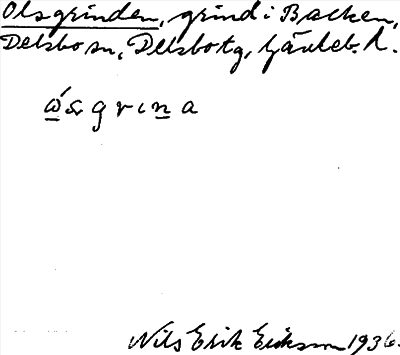 Olsgrinden, grind i Backen,
Delsbo sn, Delsbo tg, Gävleb. l.
Nils Erik Eriksson 1936.